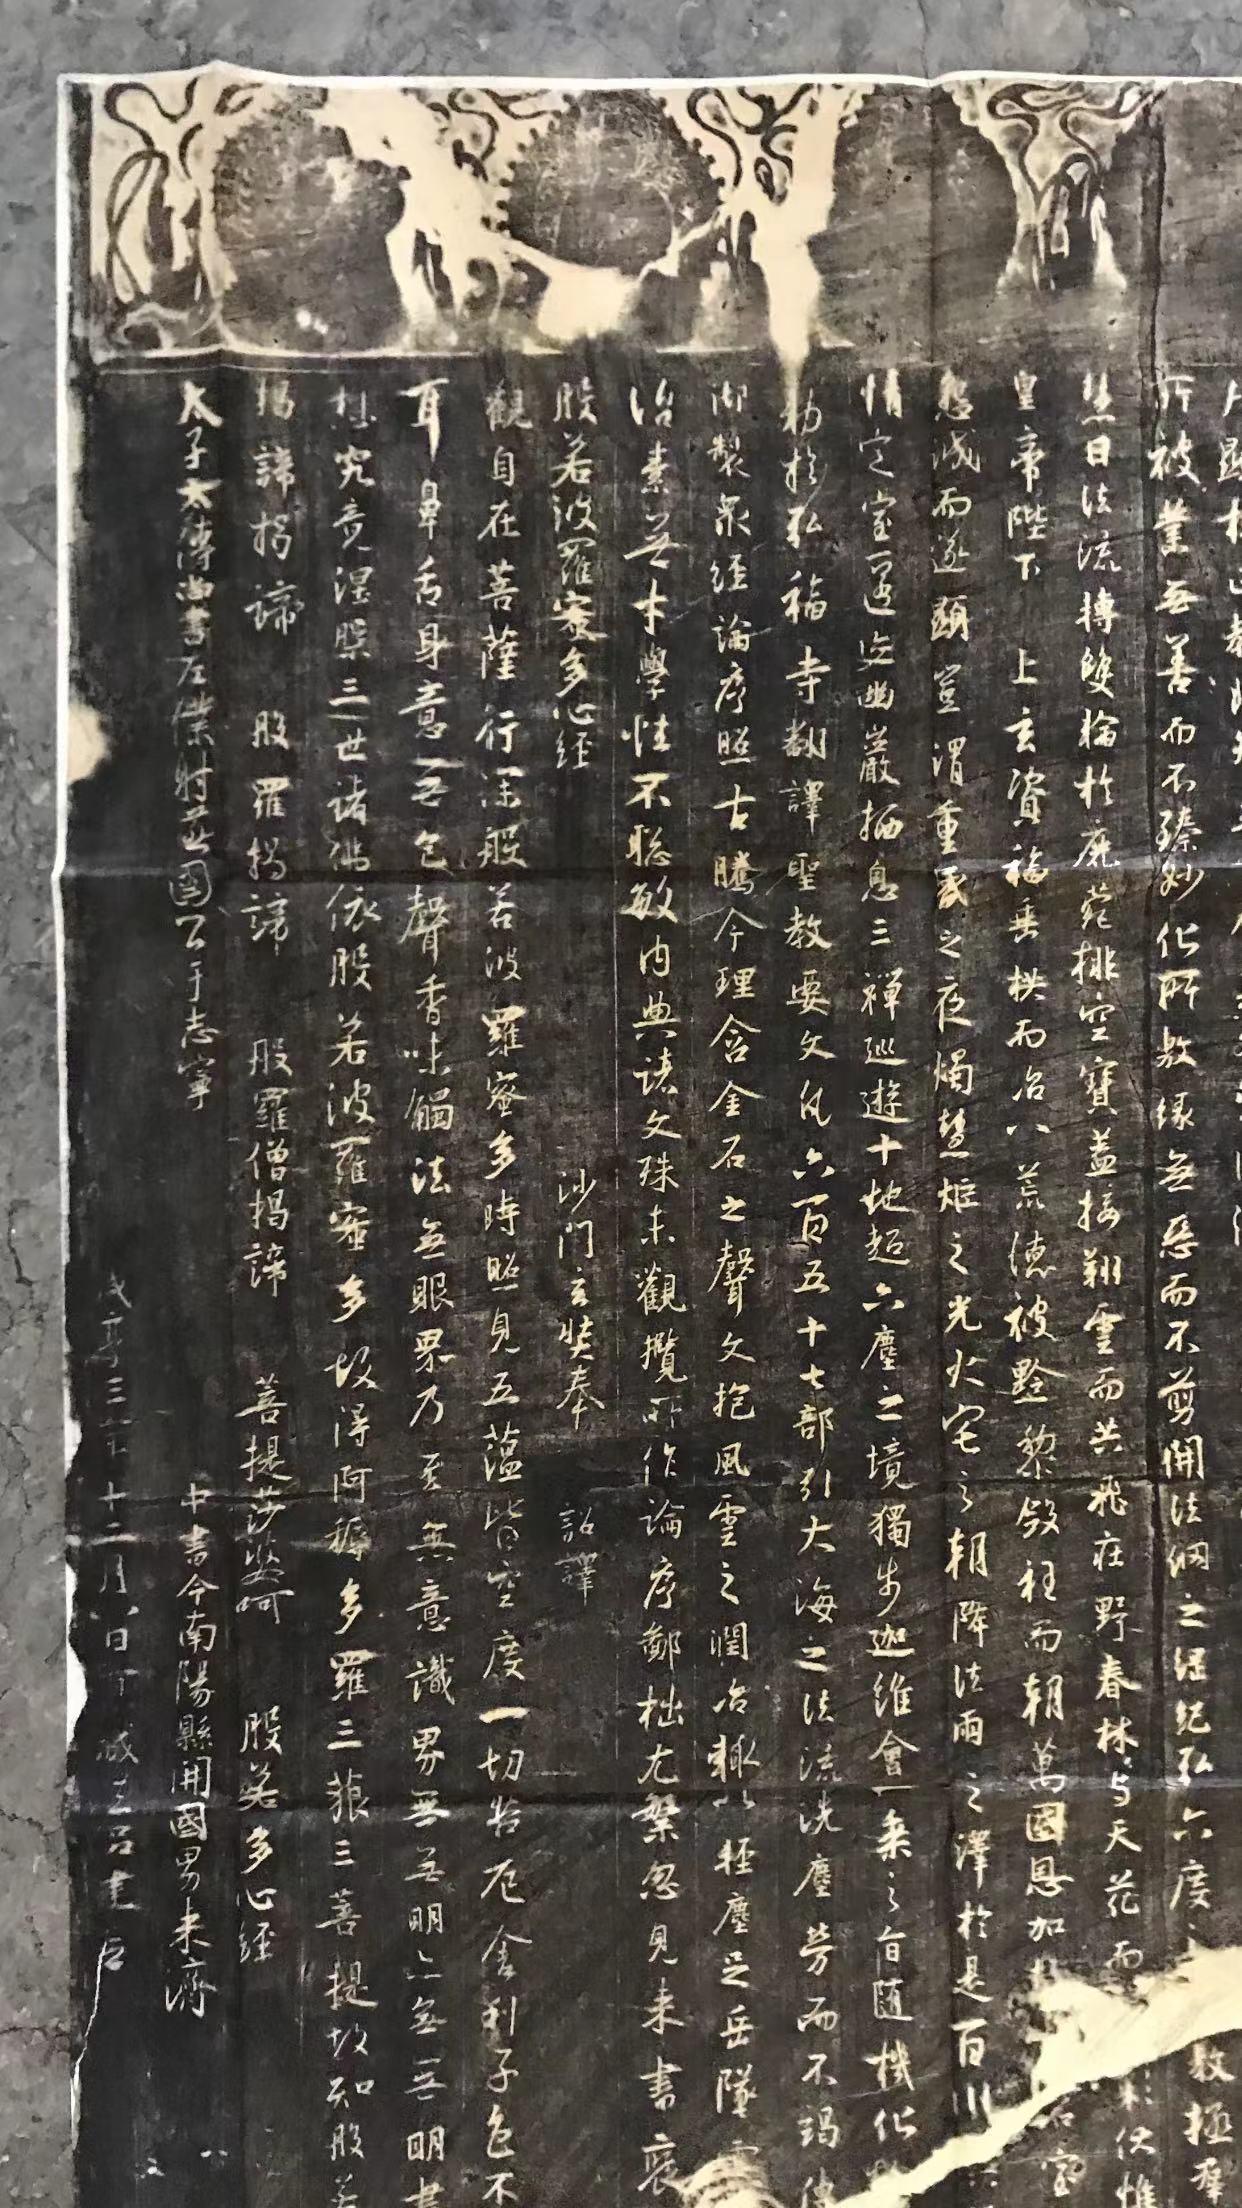 所被業無善而不臻妙化所敷緣無惡而不剪開法網之綱紀弘六度
慧日法流轉雙輪於鹿苑排空寶蓋接翔雲而共飛莊野春林與天花而
皇帝陛下 上玄資福垂拱而治八荒德被黔黎斂衽而朝萬國恩加
懸滅而逐顯豈謂重昏之夜燭慧炬之光火宅之朝降法雨之澤於是百川
情定室匿迹幽巖栖息三禪巡遊十地超六塵之境獨步迦維會一乘之旨隨機化
勅於弘福寺翻譯聖教要文凡六百五十七部引大海之法流洗塵勞而不竭傳
御製眾經論序照古騰今理含金石之聲文抱風雲之潤治輒以輕塵足岳墜露
治素無才學性不聰敏內典諸文殊未觀攬所作論序鄙拙尤繁忽見來書褒
般若波羅蜜多心經
沙門玄奘奉 詔譯
觀自在菩薩行深般若波羅蜜多時照見五蘊皆空度一切苦厄舍利子色不
耳鼻舌身意無色聲香味觸法無眼界乃至無意識界無無明亦無無明盡
想究竟涅槃三世諸佛依般若波羅蜜多故得阿耨多羅三藐三菩提故知般若
揭諦揭諦 般羅揭諦 般羅僧揭諦 菩提莎婆呵 般若多心經
太子太傅尚書左僕射燕國公于志寧
中書令南陽縣開國男來濟
咸亨三年十二月八日